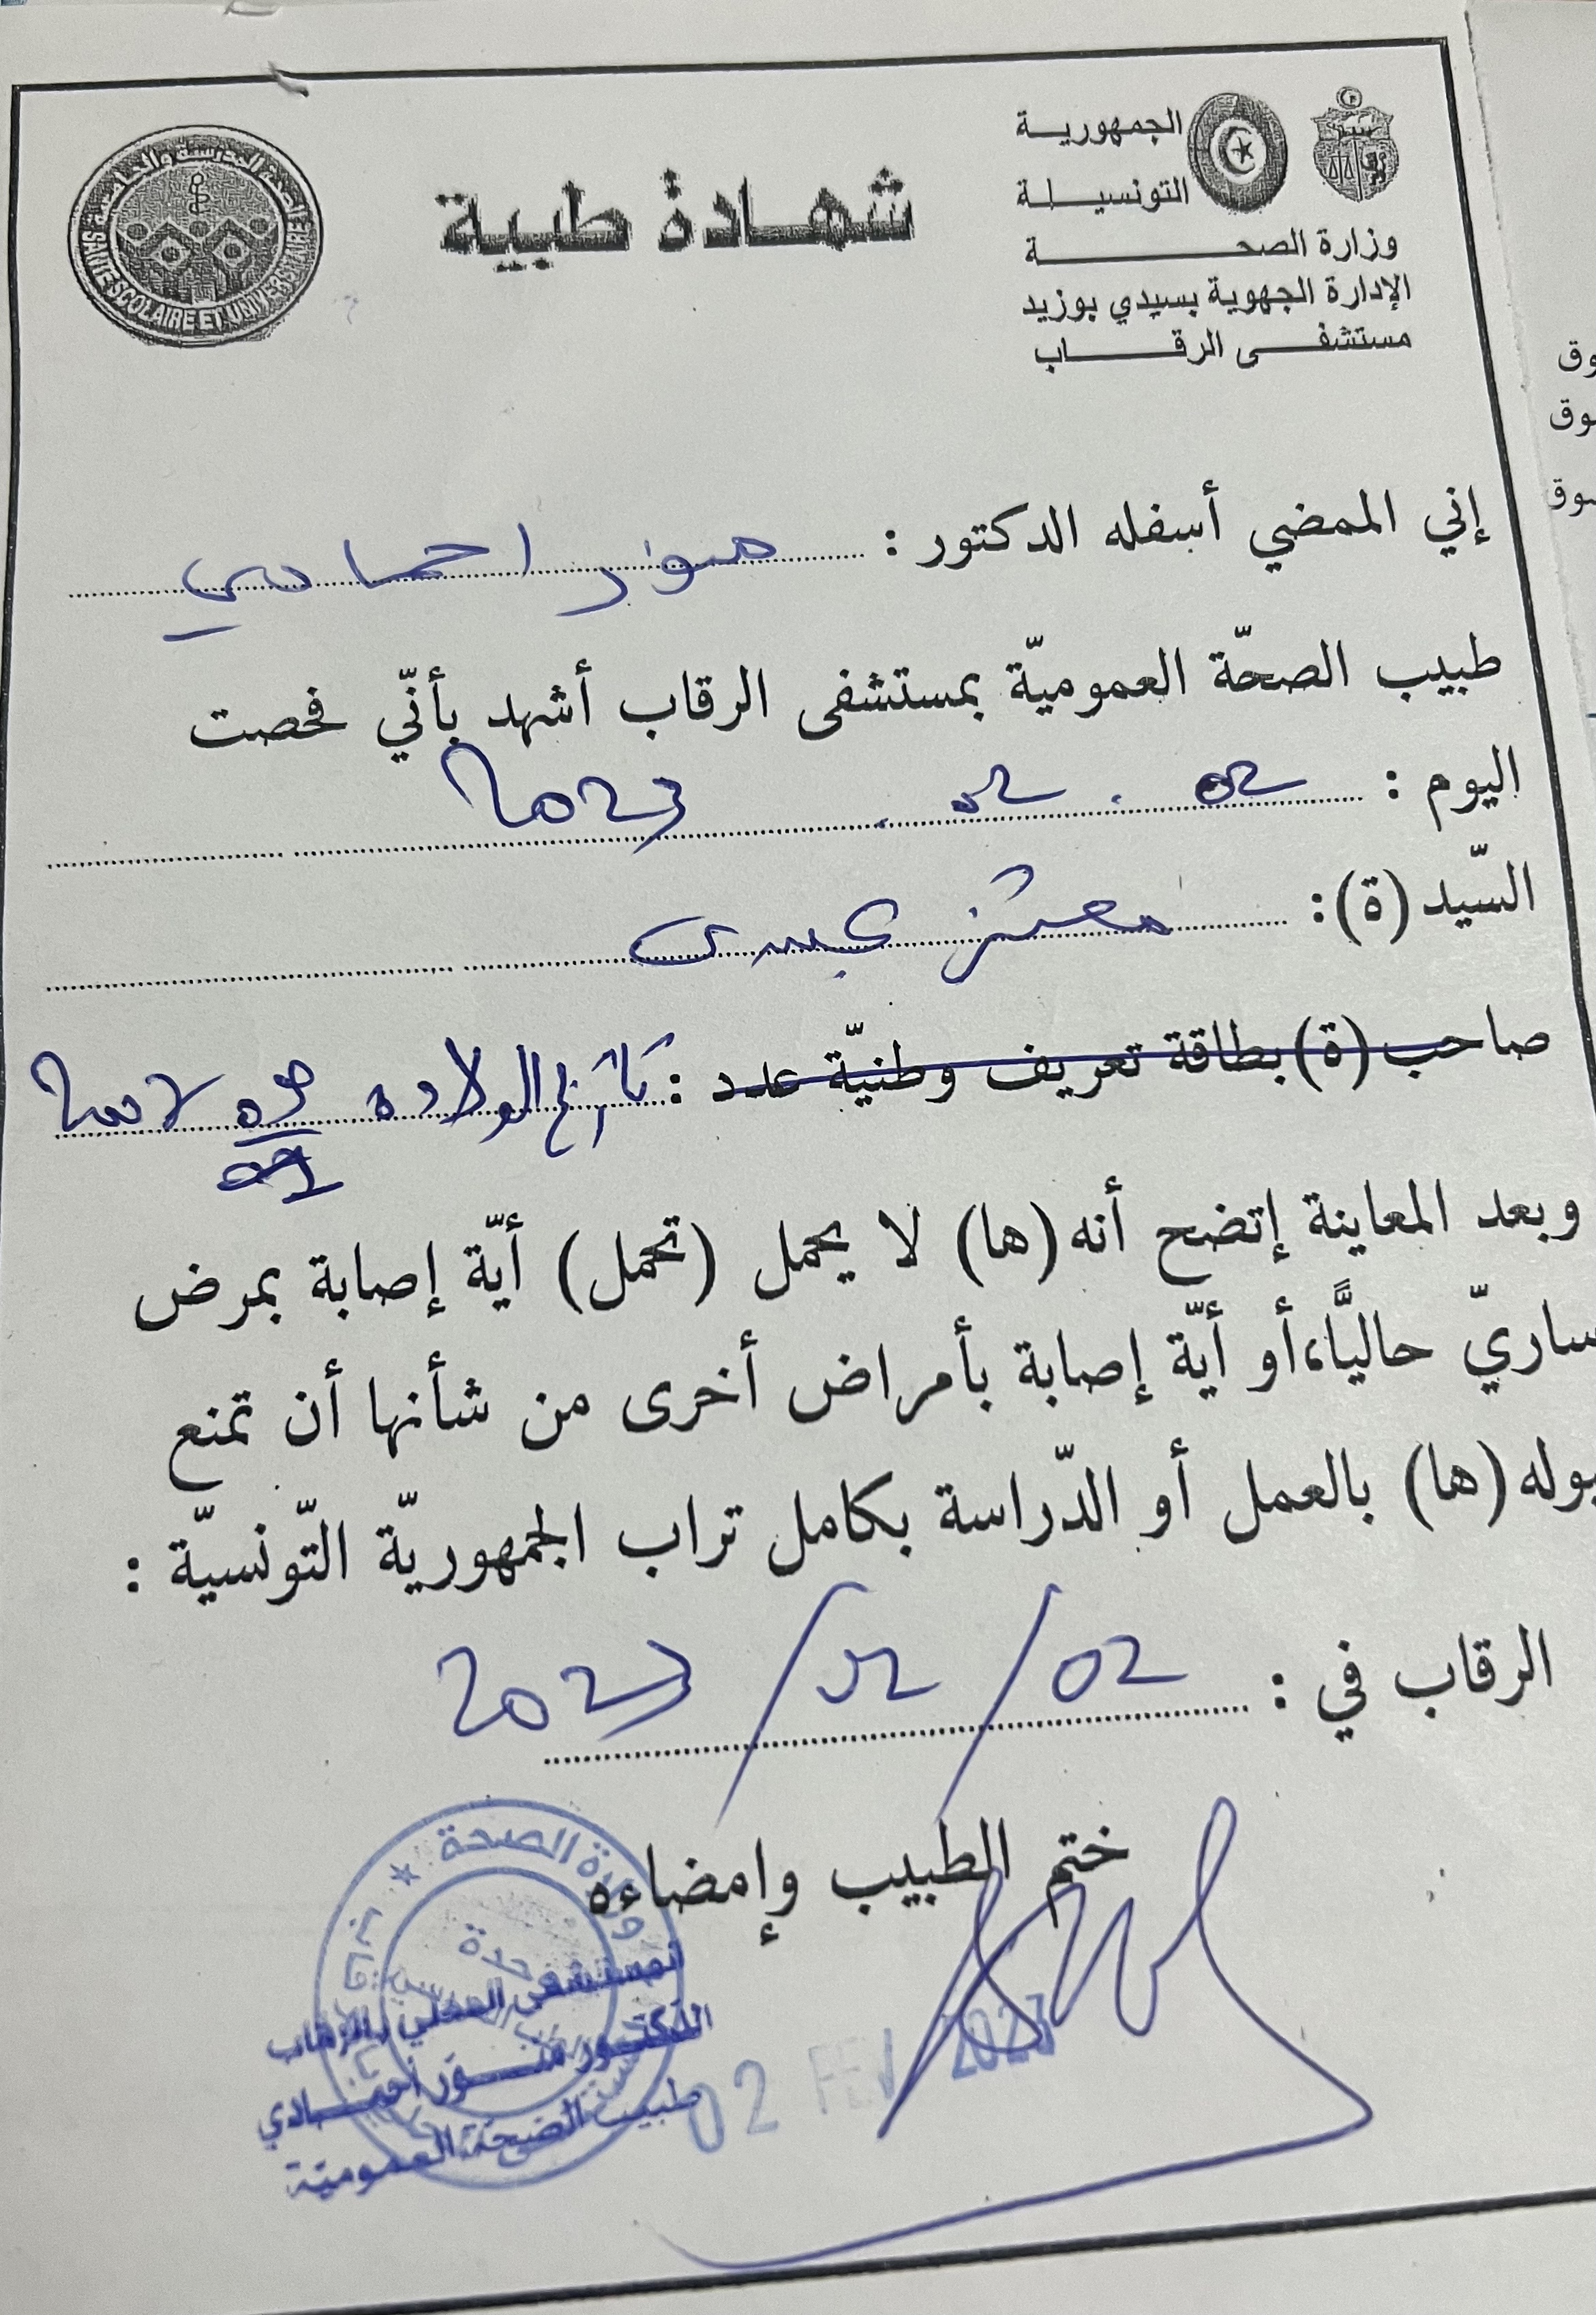 الجمهورية
التونسية
وزارة الصحة
الإدارة الجهوية بسيدي بوزيد
مستشفى الرقاب
شهادة طبية
الصحة المدرسية والجامعية
SANTE SCOLAIRE ET UNIVERSITAIRE
وق
وق
وق
إني الممضي أسفله الدكتور : منور احمادي
طبيب الصحّة العموميّة بمستشفى الرقاب أشهد بأنّي فحصت
اليوم : 02 . 02 . 2023
السّيد (ة): معتز عبيدي
صاحب (ة) بطاقة تعريف وطنيّة عدد : تاريخ الولادة
وبعد المعاينة إتضح أنه (ها) لا يحمل (تحمل) أيّة إصابة بمرض
ساريّ حاليًّا،أو أيّة إصابة بأمراض أخرى من شأنها أن تمنع
بوله (ها) بالعمل أو الدّراسة بكامل تراب الجمهوريّة التّونسيّة :
الرقاب في : 02 / 02 / 2023
ختم الطبيب وإمضاءه
وزارة الصحة
المستشفى المحلي بالرقاب
الدكتور منور أحمادي
طبيب الصحة العمومية
02 FEV 2023